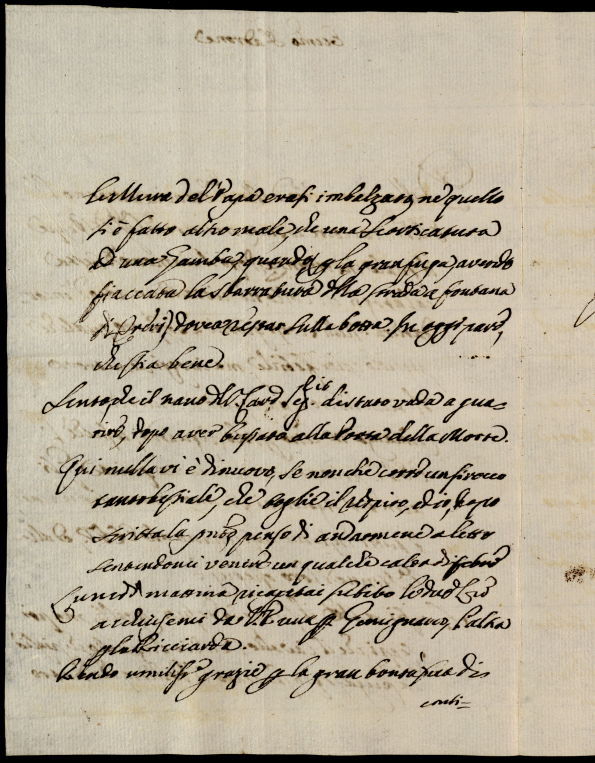 le Mure del Papa erasi imbalzata, ne quello
si è fatto altro male, che una scorticatura
ad una Gamba, quando p la gran fuga avendo
fiaccata la sbarratura della strada a fontana
di dovea restar sulla botta. In oggi pare,
che stia bene.
Sento che il nano del S. Card. Seg.rio di stato vada a gua-
rire, dopo aver bussato alla Porta della Morte.
Qui nulla vi è di nuovo, se non che corre un sirocco
tanto bestiale, che toglie il respiro, ed io, dopo
scritta la pnte, penso di andarmene a letto
sentendomi venire un qualche calor di febre
Lunedì mattina ricapitai subito le due Lre
acchiusemi da V.S. una p Gomignani, l'altra
p la Ricciarda.
Rendo umiliss.e grazie p la gran bontà sua di
conti=